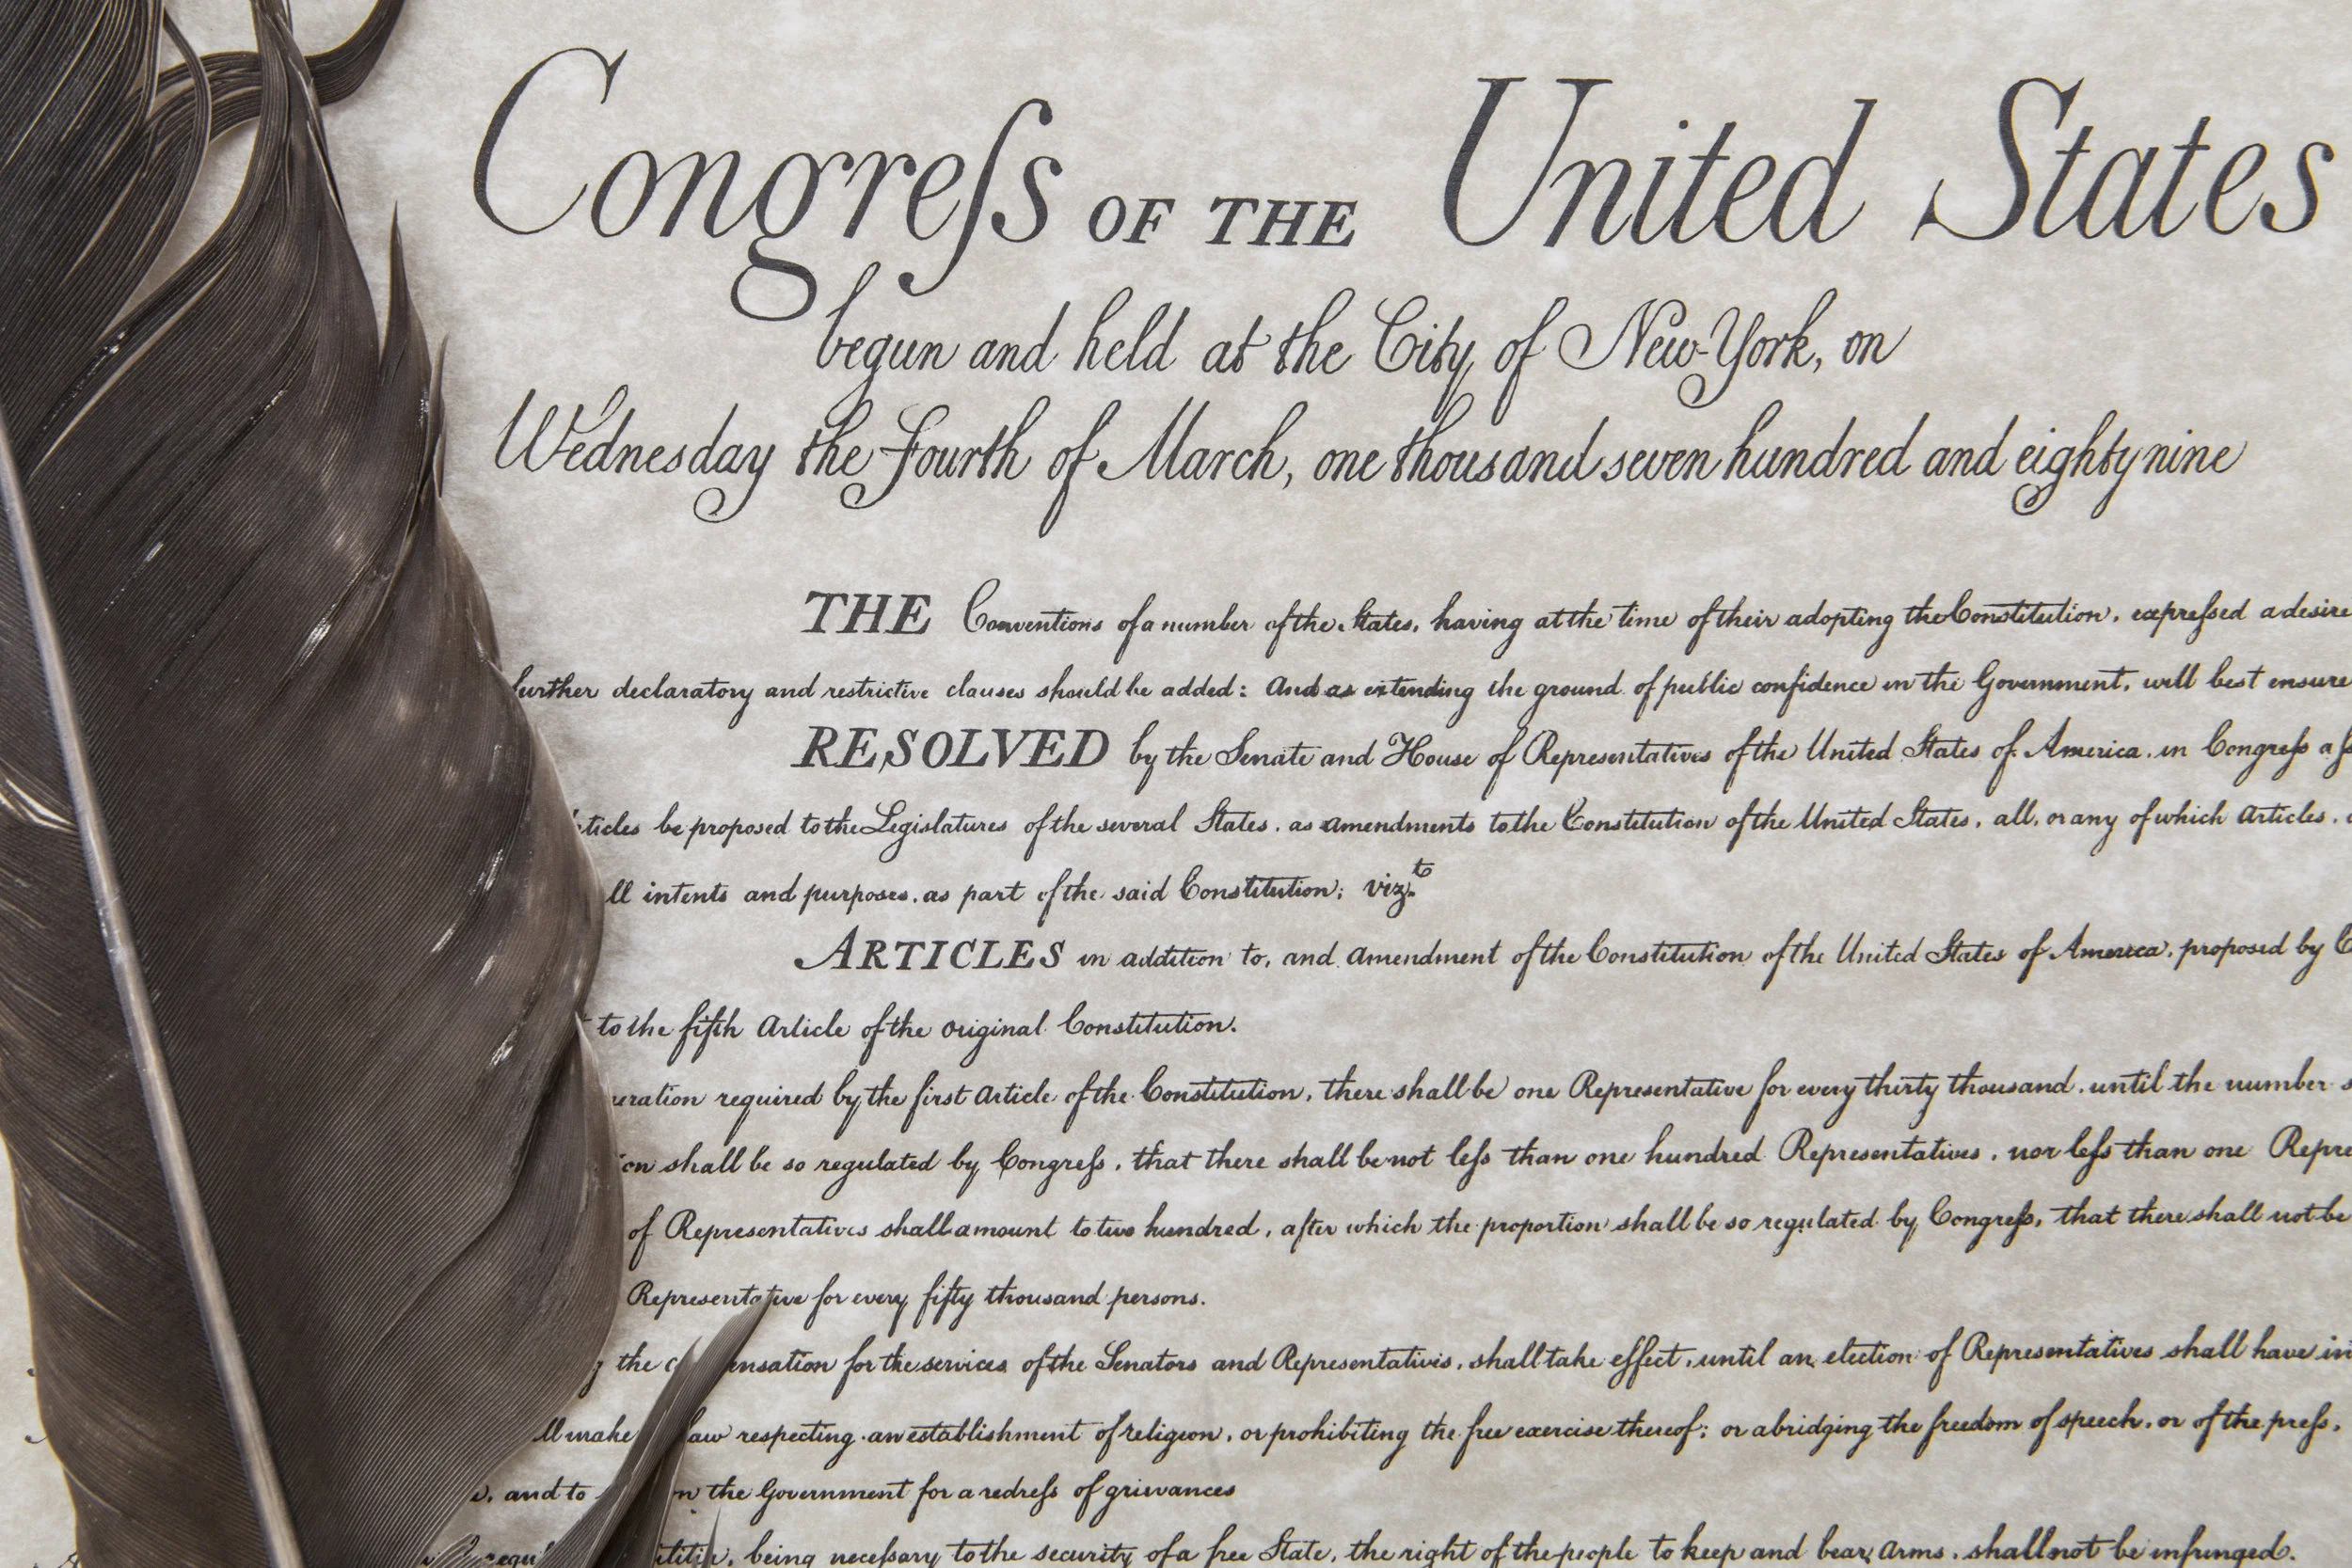 Congreſs OF THE United States
begun and held at the City of New-York, on
Wednesday the Fourth of March, one thousand seven hundred and eighty nine
THE Conventions of a number of the States, having at the time of their adopting the Constitution, expreſsed a desire
further declaratory and restrictive clauses should be added: And as extending the ground of public confidence in the Government, will best ensure
RESOLVED by the Senate and House of Representatives of the United States of America, in Congreſs
be proposed to the Legislatures of the several States, as amendments to the Constitution of the United States, all, or any of which Articles,
intents and purposes, as part of the said Constitution; vizt.
ARTICLES in addition to, and Amendment of the Constitution of the United States of America, proposed by
to the fifth Article of the original Constitution.
required by the first Article of the Constitution, there shall be one Representative for every thirty thousand, until the number
shall be so regulated by Congreſs, that there shall be not leſs than one hundred Representatives, nor leſs than one
of Representatives shall amount to two hundred, after which the proportion shall be so regulated by Congreſs, that there shall not be
Representative for every fifty thousand persons.
the for the services of the Senators and Representatives, shall take effect, until an election of Representatives shall have
make law respecting an establishment of religion, or prohibiting the free exercise thereof; or abridging the freedom of speech, or of the preſs,
and to the Government for a redreſs of grievances
being neceſsary to the security of a free State, the right of the people to keep and bear Arms, shall not be infringed.